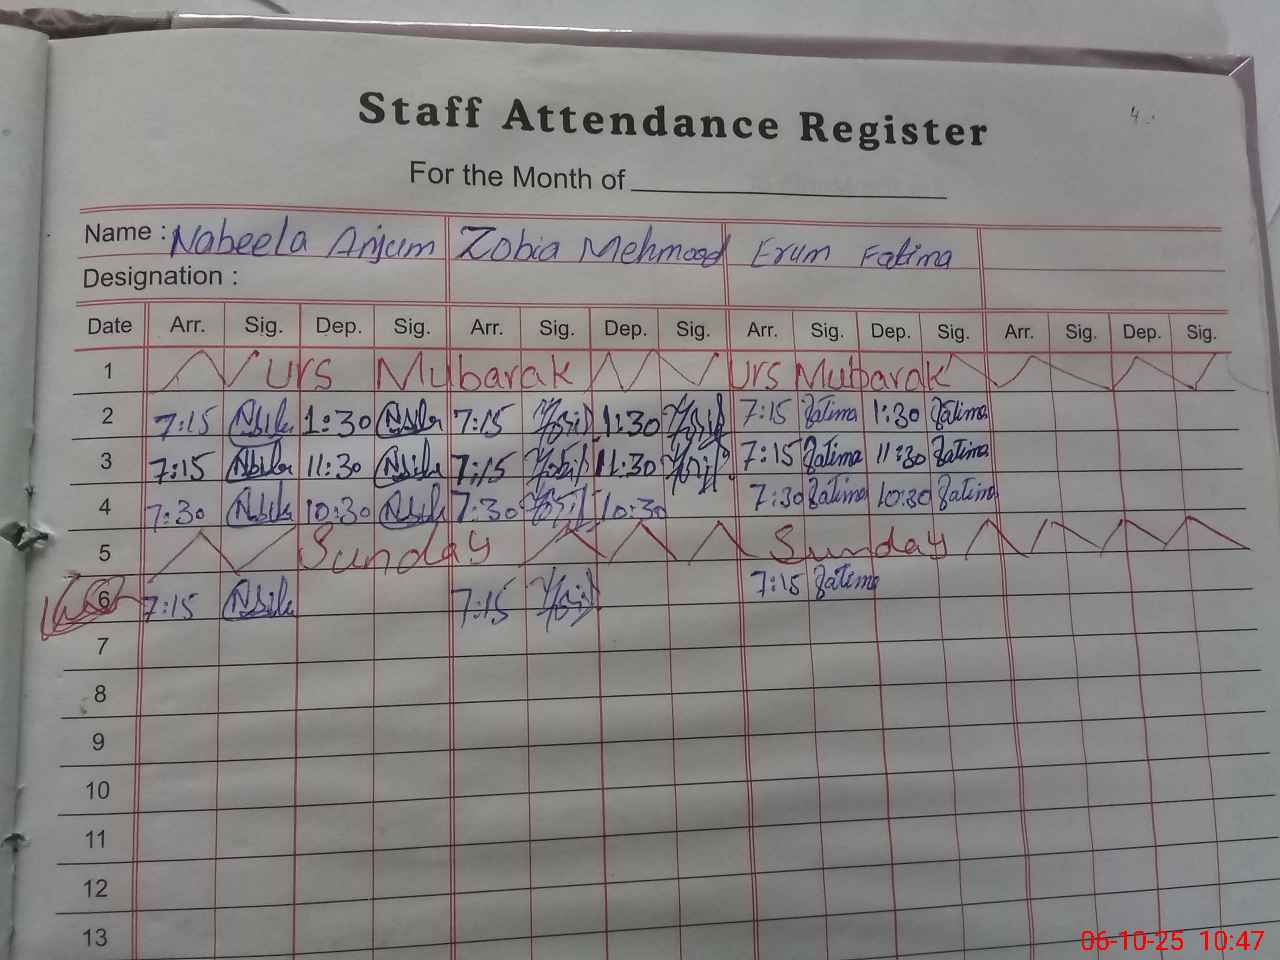 Staff Attendance Register
For the Month of
Name : Nabeela Anjum Zobia Mehmood Erum Fatima
Designation :
Date Arr. Sig. Dep. Sig. Arr. Sig. Dep. Sig. Arr. Sig. Dep. Sig. Arr. Sig. Dep. Sig.
1 Urs Mubarak Urs Mubarak
2 7:15 1:30 7:15 1:30 7:15 Fatima 1:30 Fatima
3 7:15 11:30 7:15 11:30 7:15 Fatima 11:30 Fatima
4 7:30 10:30 7:30 10:30 7:30 Fatima 10:30 Fatima
5 Sunday Sunday
6 7:15 7:15 7:15 Fatima
7
8
9
10
11
12
13
06-10-25 10:47